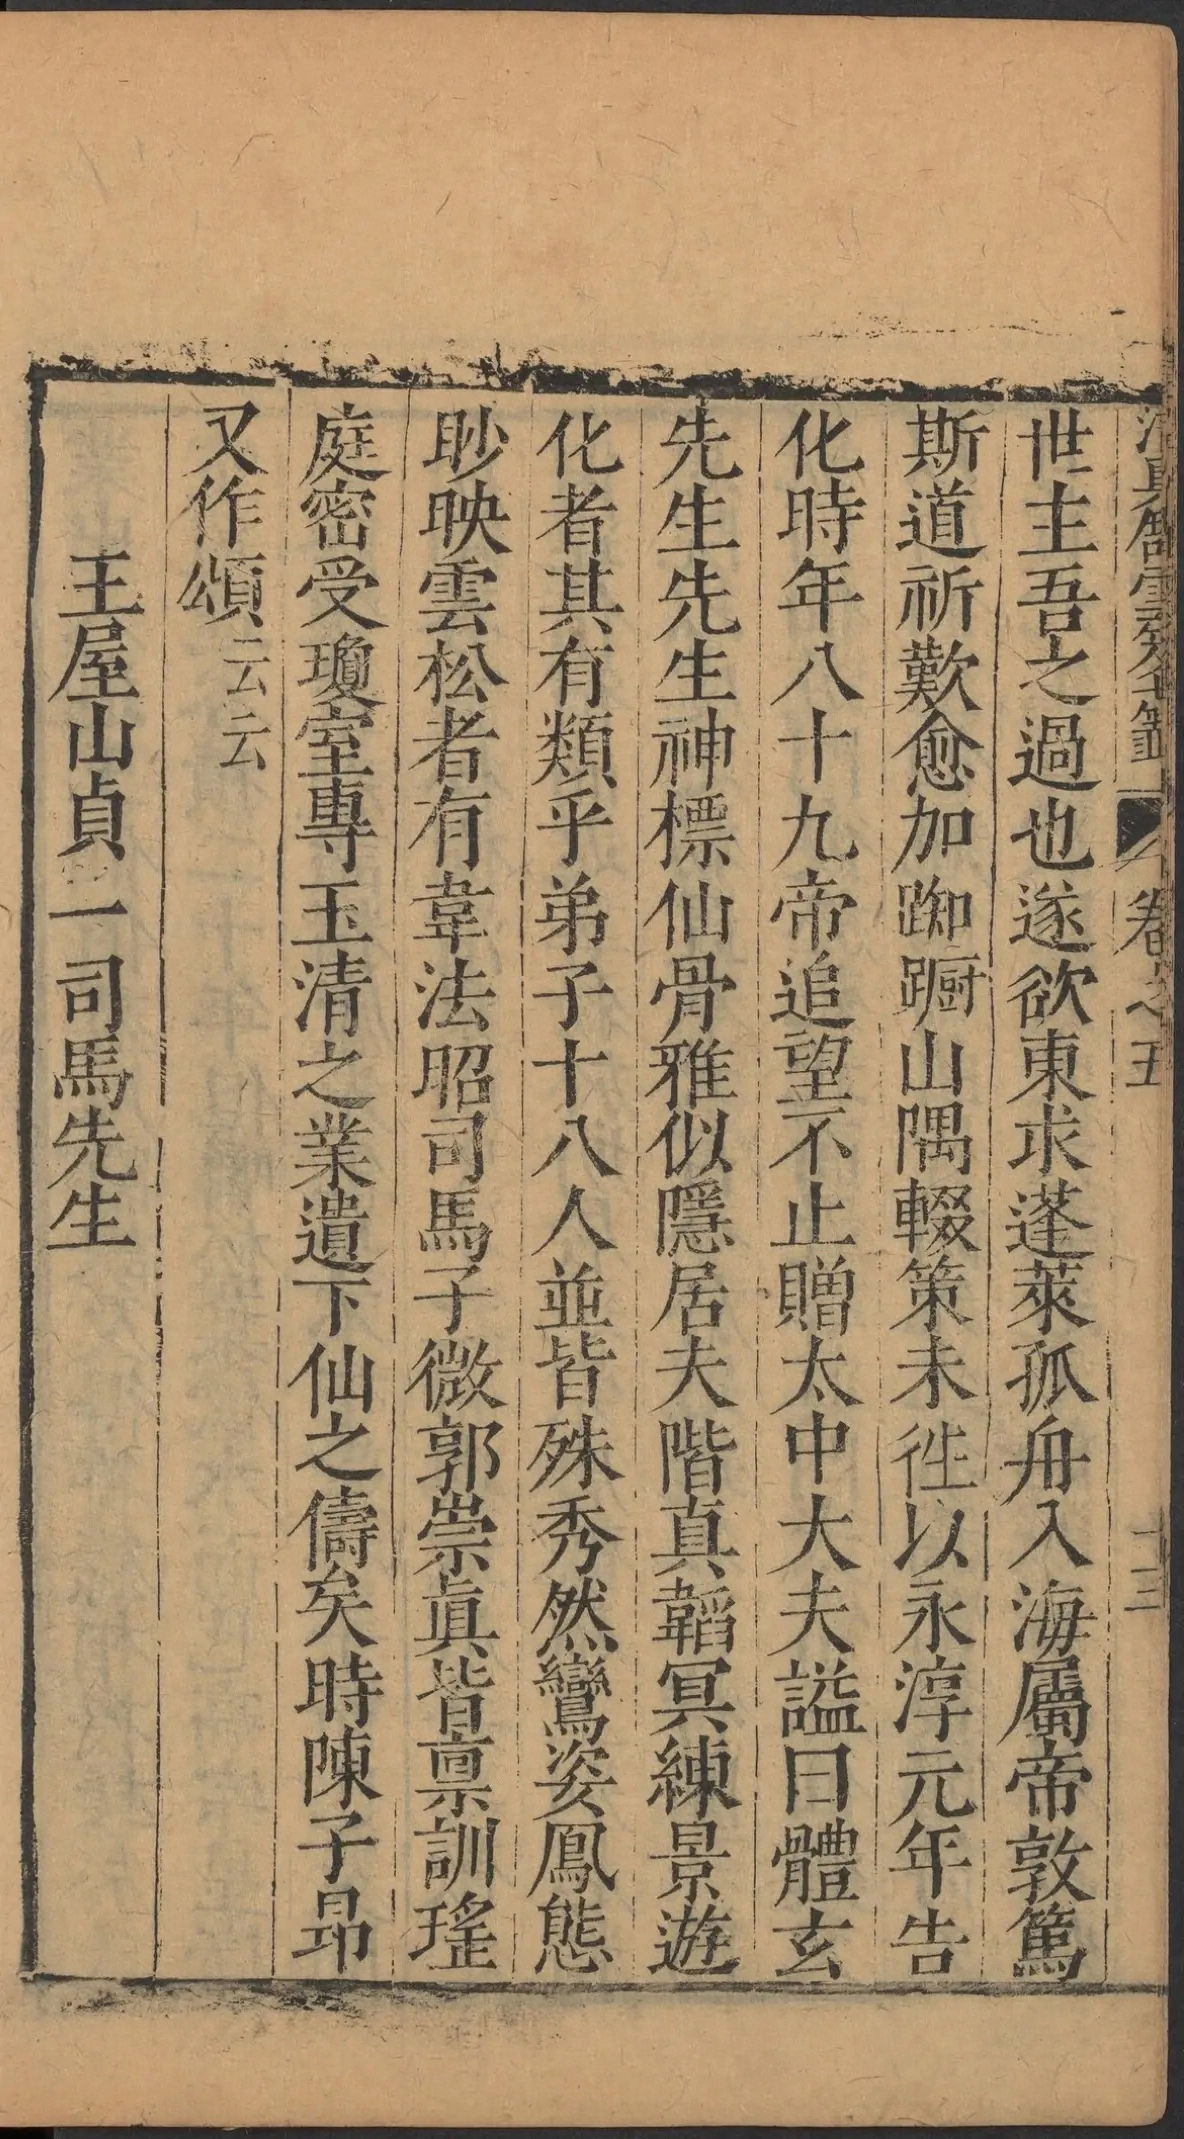 清眞館雲笈七籤 卷之五 十三
世主吾之過也遂欲東求蓬萊孤舟入海屬帝敦篤
斯道祈歎愈加踟蹰山隅輟策未徃以永淳元年告
化時年八十九帝追望不止贈太中大夫謚曰體玄
先生先生神標仙骨雅似隱居夫階真韜冥練景遊
化者其有類乎弟子十八人並皆殊秀然鸞姿鳳態
眇映雲松者有韋法昭司馬子微郭崇眞皆禀訓瑤
庭密受瓊室專玉清之業遺下仙之儔矣時陳子昂
又作頌云云
王屋山貞一司馬先生